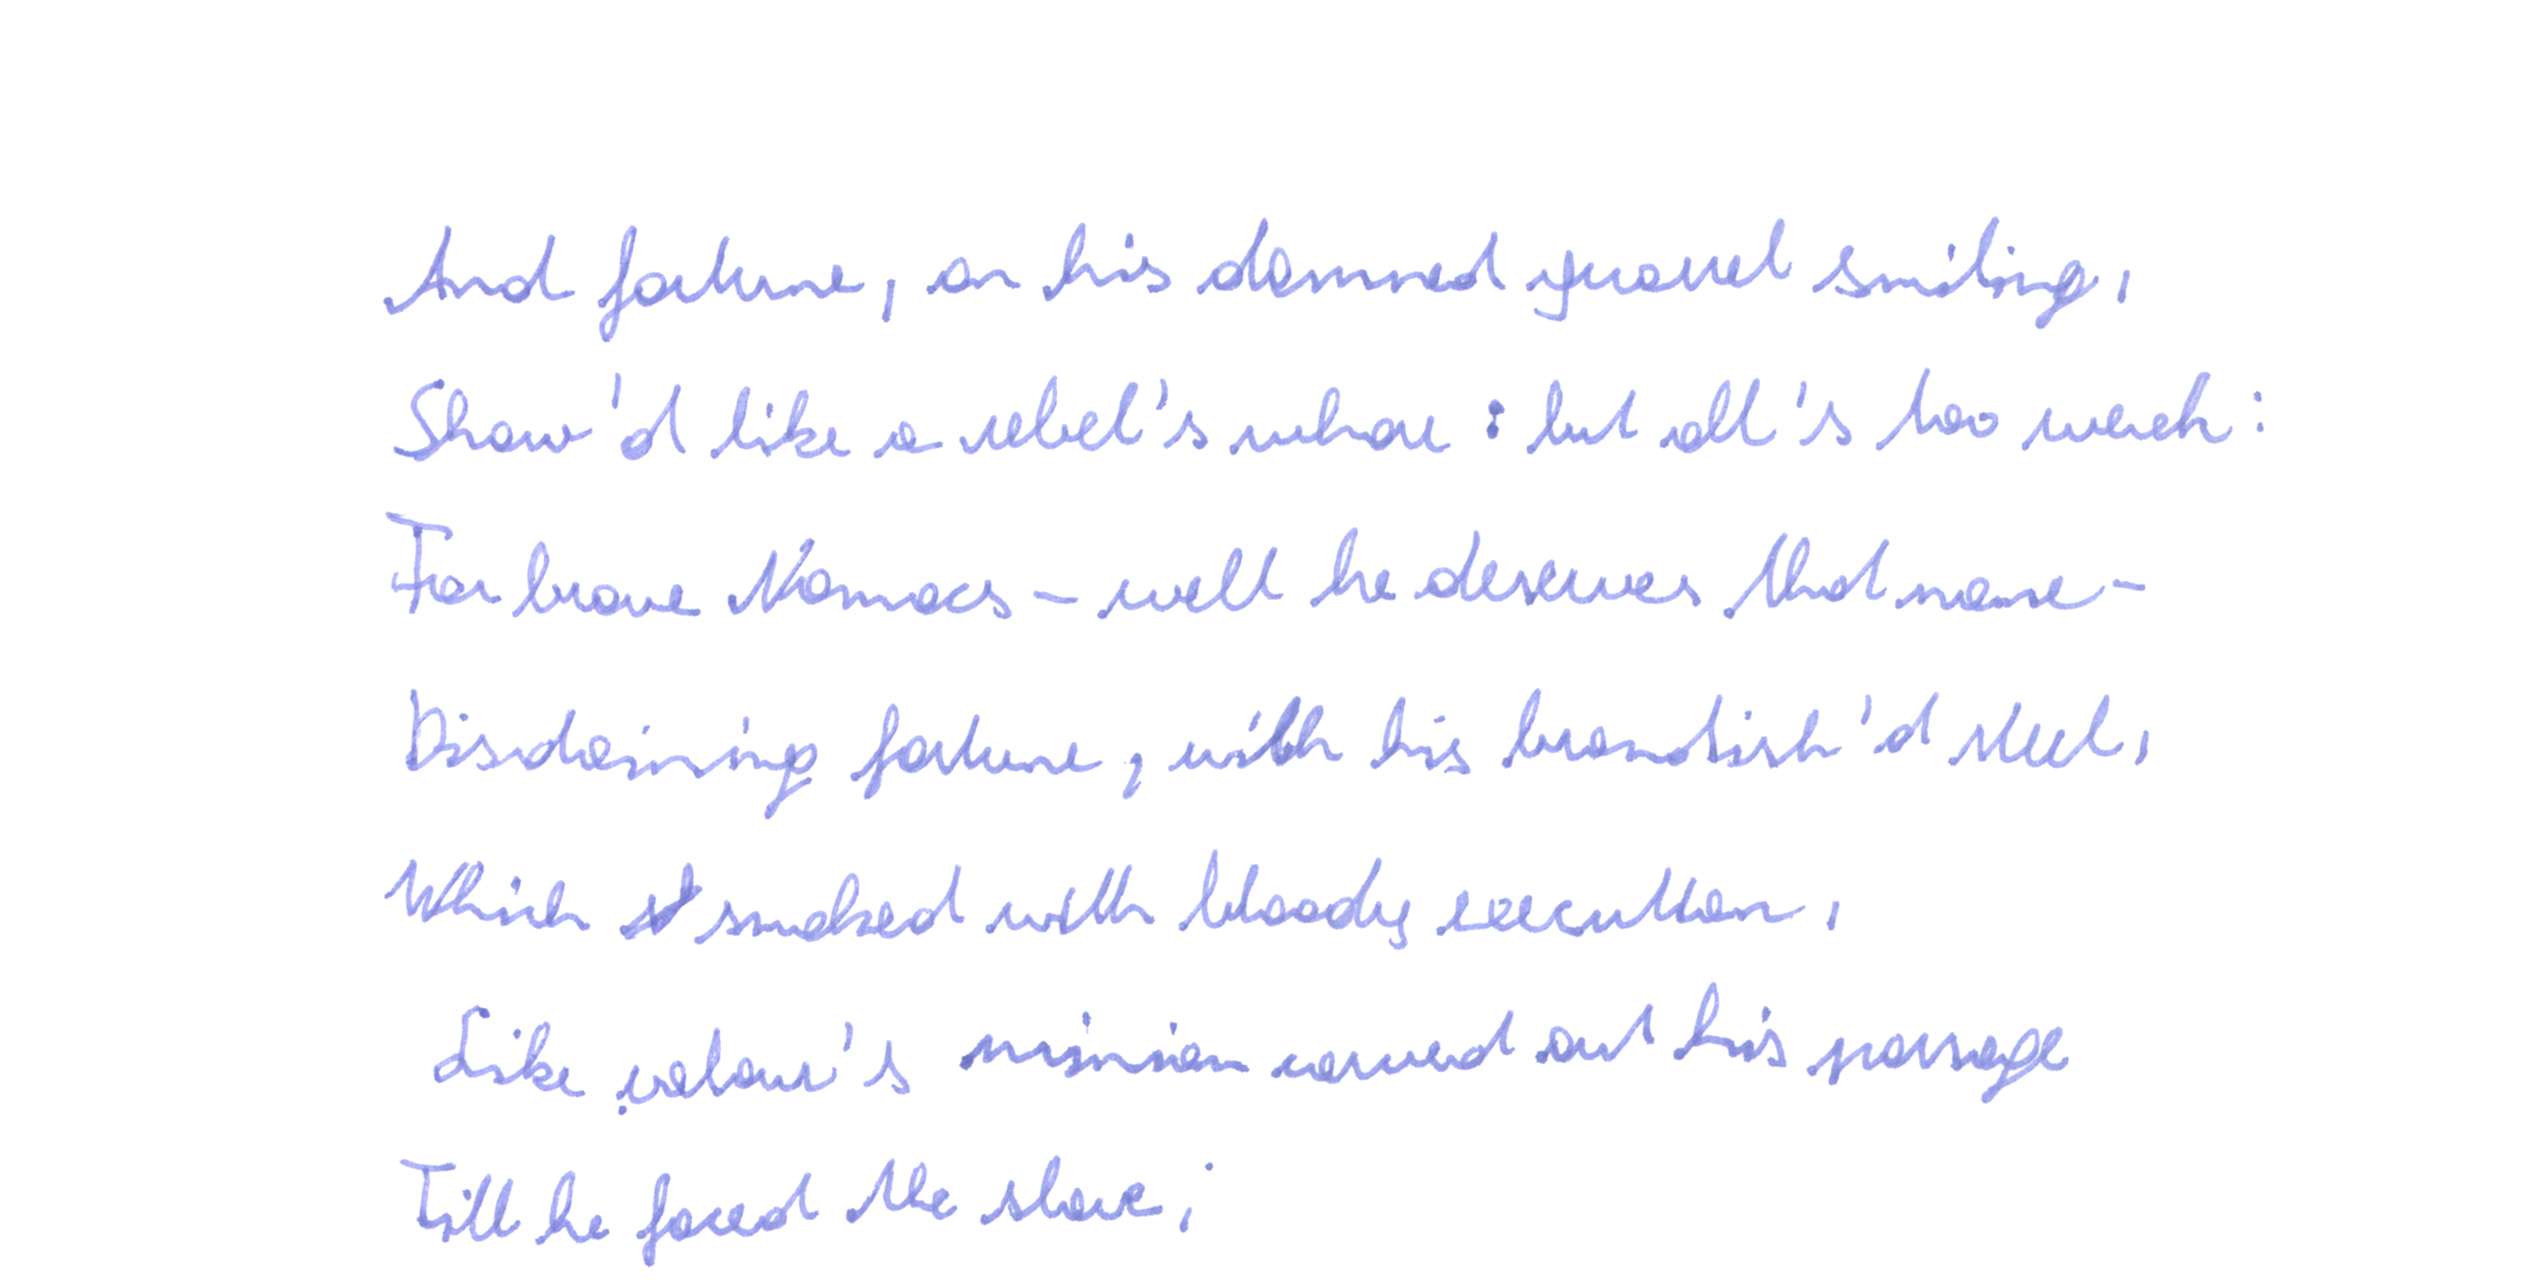 And fortune, on his damned quarrel smiling,
Show'd like a rebel's whore : but all's too weak :
For brave Macbeth - well he deserves that name -
Disdaining fortune, with his brandish'd steel,
Which smoked with bloody execution,
Like valour's minion carved out his passage
Till he faced the slave ;